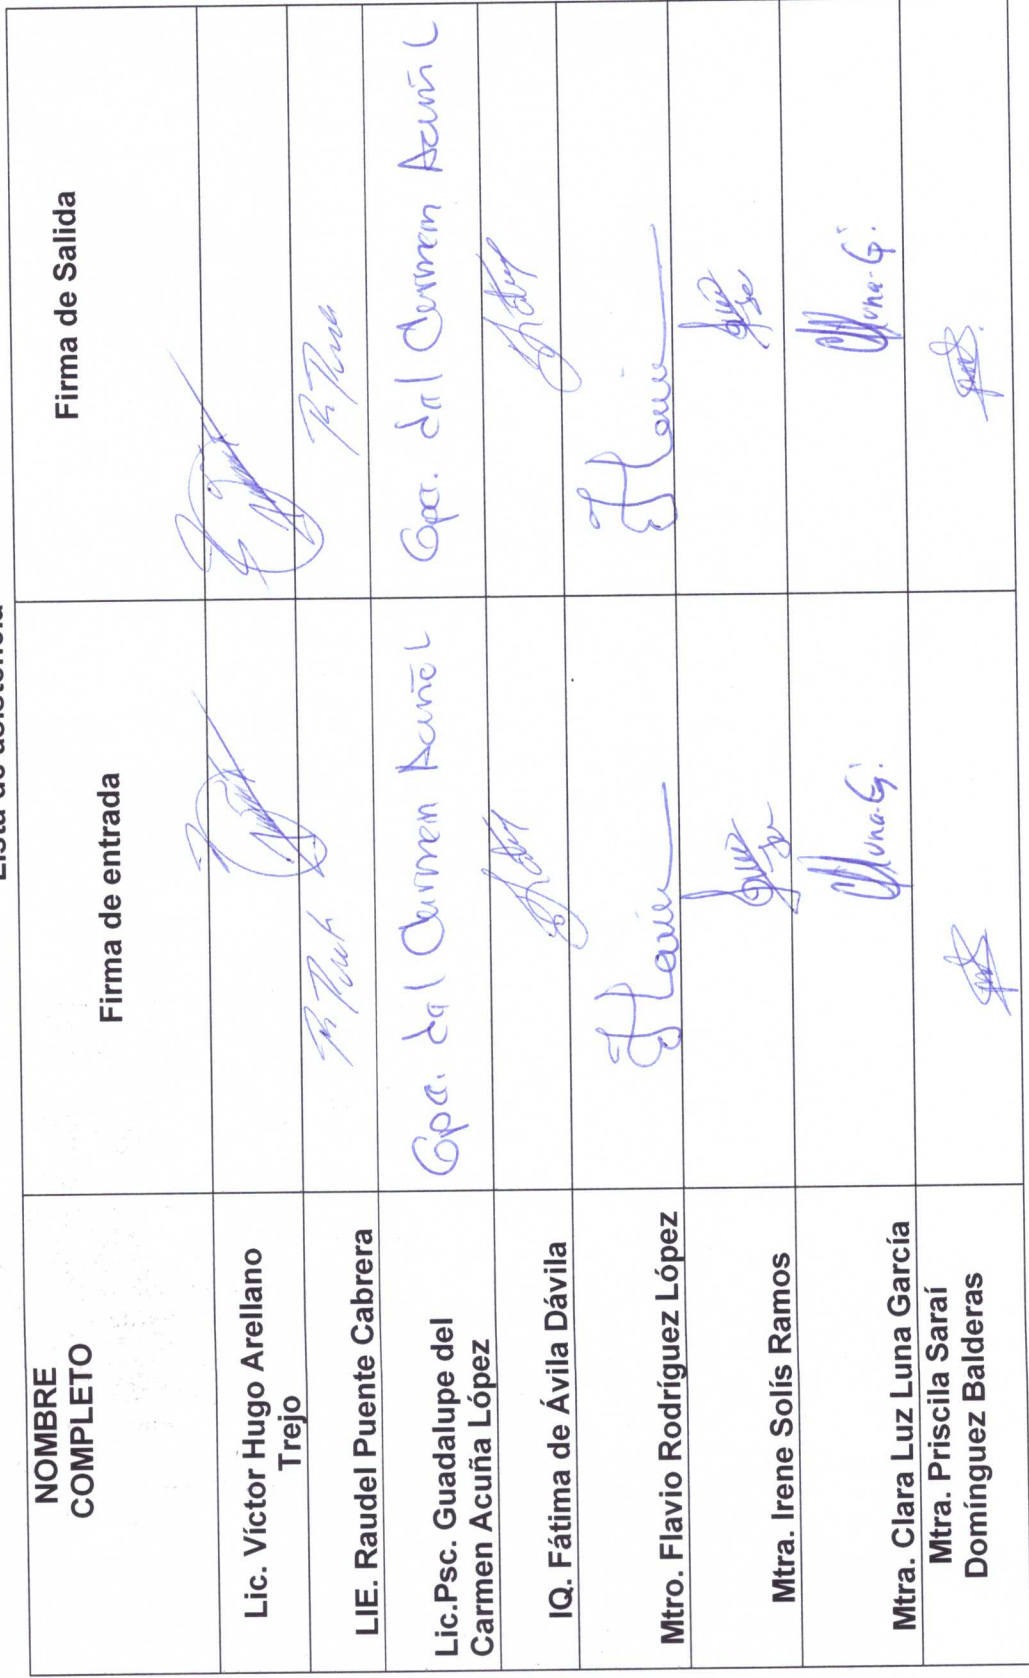 Lista de asistencia
NOMBRE
COMPLETO
Firma de entrada
Firma de Salida
Lic. Víctor Hugo Arellano
Trejo
LIE. Raudel Puente Cabrera
Lic.Psc. Guadalupe del
Carmen Acuña López
Gpa. del Carmen Acuña L
Gpa. del Carmen Acuña L
IQ. Fátima de Ávila Dávila
Mtro. Flavio Rodríguez López
Mtra. Irene Solís Ramos
Mtra. Clara Luz Luna García
Luna G.
Luna G.
Mtra. Priscila Saraí
Domínguez Balderas